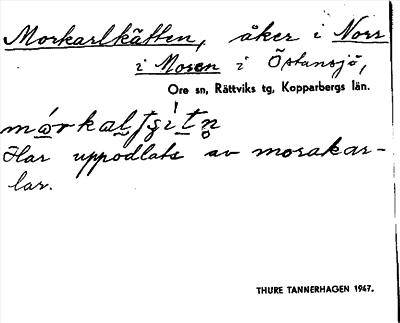 Morkarlkätten, åker i Norr
i Mosen i Östansjö,
Ore sn, Rättviks tg, Kopparbergs län.
Har uppodlats av morakar-
lar.
THURE TANNERHAGEN 1947.